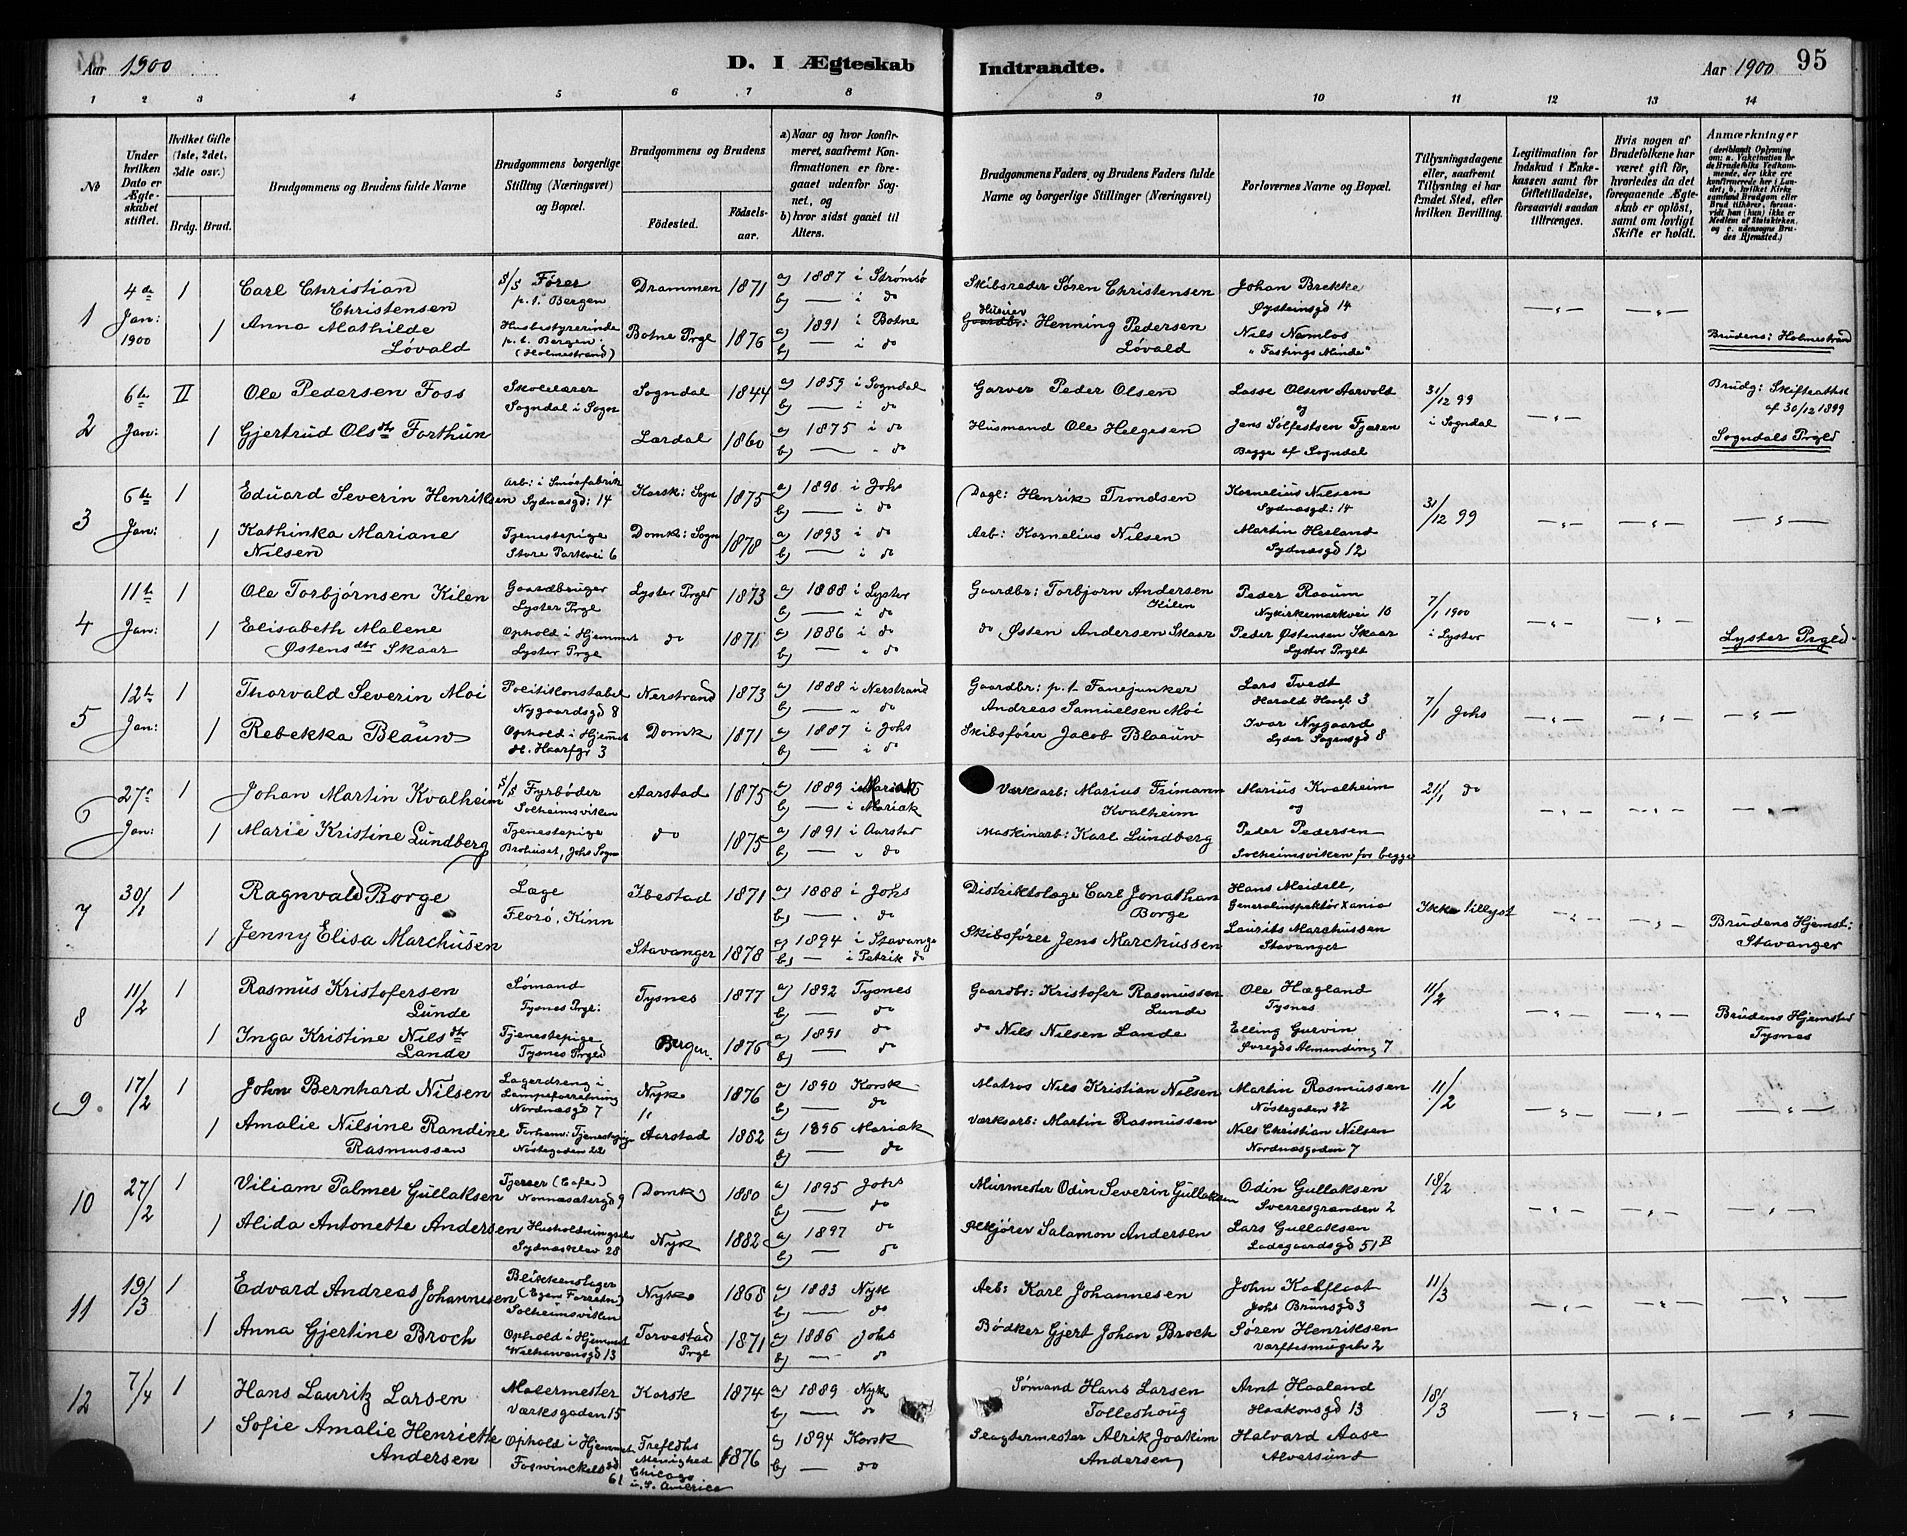 Aar 1900
D. I Ægteskab
Indtraadte.
Aar 1900 95
1 2 3 4 5 6 7 8 9 10 11 12 13 14
No
Under hvilken Dato er Ægteskabet stiftet.
Hvilket Gifte (1ste, 2det, 3die osv.)
Brdg. Brud.
Brudgommens og Brudens fulde Navne
Brudgommens borgerlige Stilling (Næringsvei) og Bopæl.
Brudgommens og Brudens
Fødested. Fødselsaar.
a) Naar og hvor konfirmeret, saafremt Konfirmationen er foregaaet udenfor Sognet, og
b) hvor sidst gaaet til Alters.
Brudgommens Faders og Brudens Faders fulde Navne og borgerlige Stillinger (Næringsvei)
Forlovernes Navne og Bopæl.
Tillysningsdagene eller, saafremt Tillysning ei har fundet Sted, efter hvilken Bevilling.
Legitimation for Indskud i Enkekassen samt for Giftetilladelse, forsaavidt saadan tiltrænges.
Hvis nogen af Brudefolkene har været gift før, hvorledes da det foregaaende Ægteskab er opløst, samt om lovligt Skifte er holdt.
Anmærkninger (deriblandt Oplysning om: a. Vakcination for de Brudefolks Vedkommende, der ikke ere konfirmerede her i Landet, b. hvilket Kirkesamfund Brudgom eller Brud tilhører, forsaavidt han (hun) ikke er Medlem af Statskirken, og c. udensogns Brudes Hjemsted.)
1 4de Jan: 1900 1 Carl Christian Christensen S/S Fører p.t. Bergen Drammen 1871 a) 1887 i Strømsø b) — i do Skibsreder Søren Christensen Johan Brekke Øysteinsgd 14
1 Anna Mathilde Løvald Husbestyrerinde p.t. Bergen (Holmestrand) Botne Prgl 1876 a) 1891 i Botne b) — i do Gaardbr: Henning Pedersen Løvald Nils Namlos "Fastings Minde" Brudens: Holmestrand
2 6te Jan: II Ole Pedersen Foss Skolelærer Sogndal i Sogn Sogndal 1844 a) 1859 i Sogndal b) — i do Garver Peder Olsen Lasse Olsen Aarvold og 31/12 99 i Sogndal Brudg: Skifteattest af 30/12 1899
1 Gjertrud Olsdtr Forthun Lærdal 1860 a) 1875 i do b) — " do Husmand Ole Helgesen Jens Sølfestsen Fjæren Begge af Sogndal Sogndals Prgld
3 6te Jan: 1 Eduard Severin Henriksen Arb: i Smørfabrik Sydnæsgd: 14 Korsk: Sogn 1875 a) 1890 i Johs b) — i do Dagl: Henrik Trondsen Kornelius Nilsen Sydnæsgd: 14 31/12 99
1 Kathinka Mariane Nilsen Tjenestepige Store Parkvei 6 Domk: Sogn 1878 a) 1893 i do b) — i do Arb: Kornelius Nilsen Martin Hesland Sydnæsgd 12
4 11te Jan: 1 Ole Torbjørnsen Kilen Gaardbruger Lyster Prgl Lyster Prgld 1873 a) 1888 i Lyster b) — i do Gaardbr: Torbjørn Andersen Kilen Peder Raaum Nykirkemarkvei 10 7/1 1900 i Lyster
1 Elisabeth Malene Østensdtr Skaar Ophold i Hjemmet Lyster Prgl do 1871 a) 1886 i do b) — " do do Østen Andersen Skaar Peder Østensen Skaar Lyster Prglt Lyster Prgld
5 12te Jan: 1 Thorvald Severin Moi Politikonstabel Nygaardsgd 8 Nerstrand 1873 a) 1888 i Nerstrand b) — " do Gaardbr: p.t. Fanejunker Andreas Samuelsen Moi Lars Tvedt Harald Haarf 3 7/1 Johs
1 Rebekka Blauw Ophold i Hjemmet H. Haarfgr 3 Domk 1871 a) 1887 i Johs b) — i do Skibsfører Jacob Blaauw Ivar Nygaard Lyder Sagensgd 8
6 27de Jan: 1 Johan Martin Kvalheim S/S Fyrbøder Solheimsviken Aarstad 1875 a) 1889 i Mariak b) — i Mariak Værksarb: Marius Frimann Kvalheim Marius Kvalheim og 21/1 do
1 Marie Kristine Lundberg Tjenestepige Brohuset, Johs Sogn do 1875 a) 1891 i Aarstad b) — " do Maskinarb: Karl Lundberg Peder Pedersen Solheimsviken for begge
7 30/1 1 Ragnvald Borge Læge Florø, Kinn Ibestad 1871 a) 1888 i Johs b) — " do Distriktslæge Carl Jonathan Borge Hans Meidell, Generalinspektør Xania Ikke tillyst
1 Jenny Elisa Marchussen Stavanger 1878 a) 1894 i Stavange b) — i Petrik do Skibsfører Jens Marchussen Laurits Marchussen Stavanger Brudens Hjemst: Stavanger
8 11/2 1 Rasmus Kristofersen Lunde Sømand Tysnes Prgl: Tysnes 1877 a) 1892 Tysnes b) — do Gaardbr: Kristofer Rasmussen Lunde Ole Hægland Tysnes 11/2
1 Inga Kristine Nilsdtr Lande Tjenestepige Tysnes Prgld Bergen. 1876 a) 1891 do b) — do do Nils Nilsen Lande Elling Gurvin Øvregds Almending 7 Brudens Hjemsted Tysnes
9. 17/2 1 John Bernhard Nilsen Lagerdreng i Lampeforretning Nordnæsgd 7 Nyk 1876 a) 1890 Korsk b) — do Matros Nils Kristian Nilsen Martin Rasmussen Nøstegaden 22 11/2
1 Amalie Nilsine Randine Rasmussen Forhenv: Tjenestepige Nøstegaden 22 Aarstad 1882 a) 1896 Mariak b) — do Værksarb: Martin Rasmussen Nils Christian Nilsen Nordnæsgaden 7
10 27/2 1 Viliam Palmer Gullaksen Tjener (Cafe) Nonnesætergd 9 Domk 1880 a) 1895 Johs b) — do Murmester Odin Severin Gullaksen Odin Gullaksen Sverresgranden 2 18/2
1 Alida Antonette Andersen Husholdningselev Sydnæskleiv 28 Nyk 1882 a) 1897 do b) — do Salamon Andersen Lars Gullaksen Ladegaardsgd 51 B
11 19/3 1 Edvard Andreas Johannesen Blikkenslager (Egen Forretn) Solheimsviken Nyk 1868 a) 1883 Nyk b) — do Arb: Karl Johannesen John Kalfloat Johs Brunsgd 3 11/3
1 Anna Gjertine Broch Ophold i Hjemmet Welhavensgd 13 Torvestad Prgl 1871 a) 1886 Johs b) — do Bødker Gjert Johan Broch Søren Henriksen Værftesmuget 2
12 7/4 1 Hans Lauritz Larsen Malermester Værksgaden 15 Korsk 1874 a) 1889 Nyk b) — do Sømand Hans Larsen Tolleshoug Arnt Haaland Haakonsgd 13 18/3
1 Sofie Amalie Henriette Andersen Ophold i Hjemmet Foswinckelsgd 61 Trefldhs Menighed Chicago i. S. America 1876 a) 1894 Korsk b) — do Slagtermester Alrik Joakim Andersen Halvard Aase Alversund